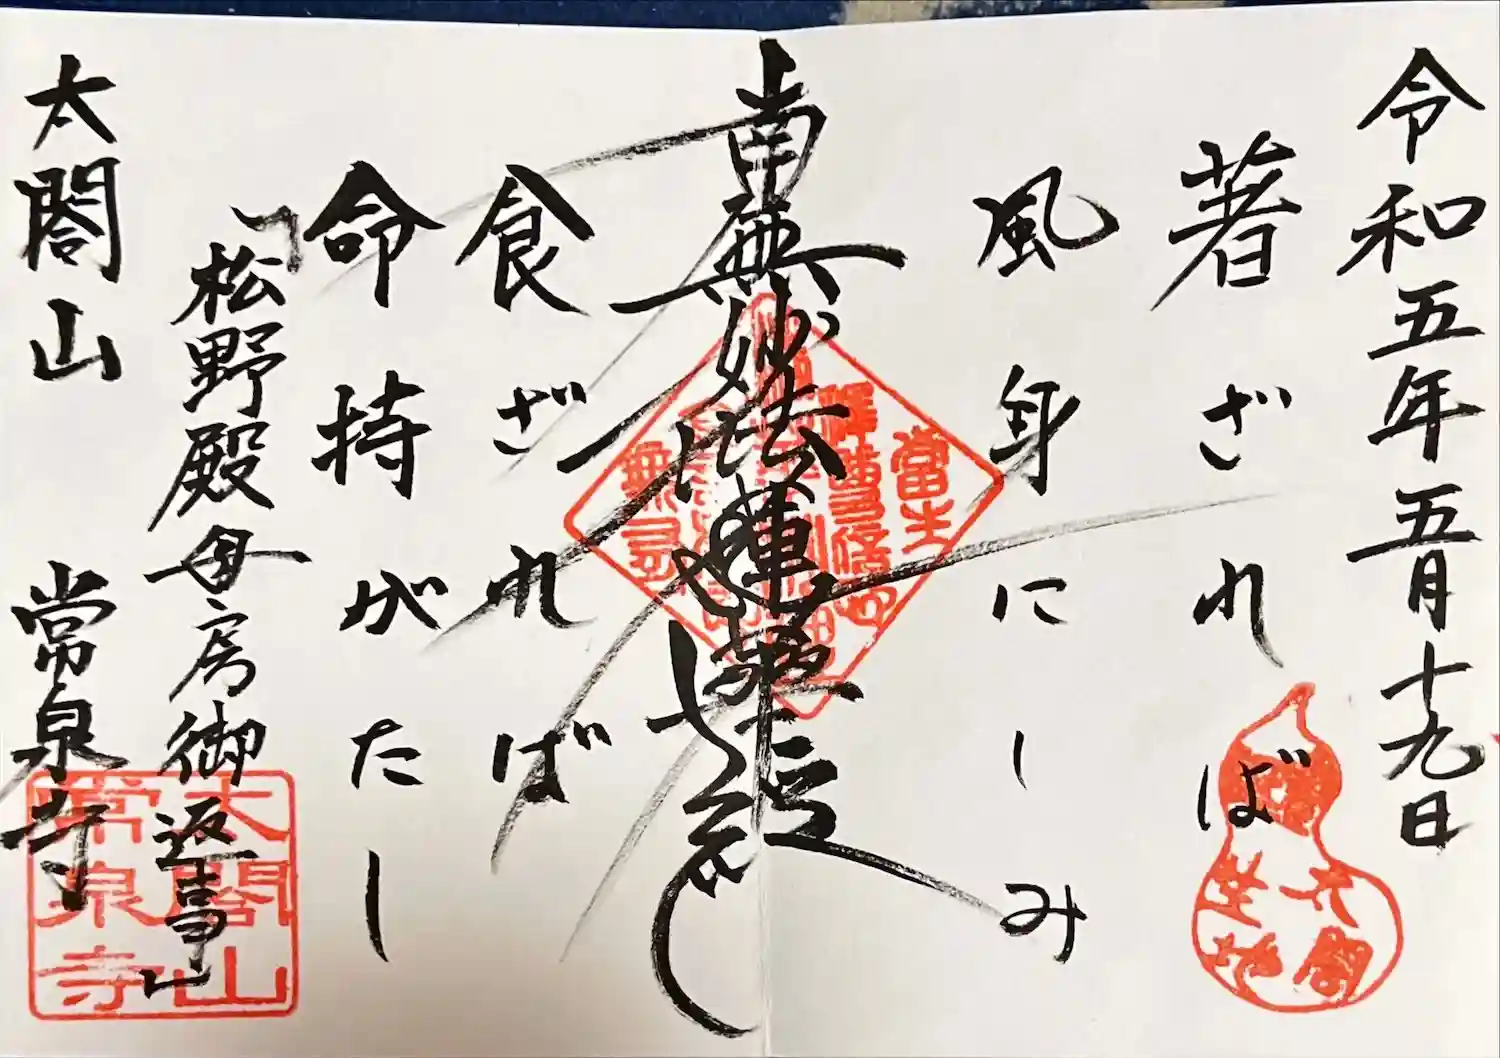 令和五年五月十九日
著ざれば
風身にしみ
南無妙法蓮華経
食ざれば
命持がたし
「松野殿母房御返事」
太閤山 常泉寺
太閤
生地
當生
無尋
太閤山
常泉寺